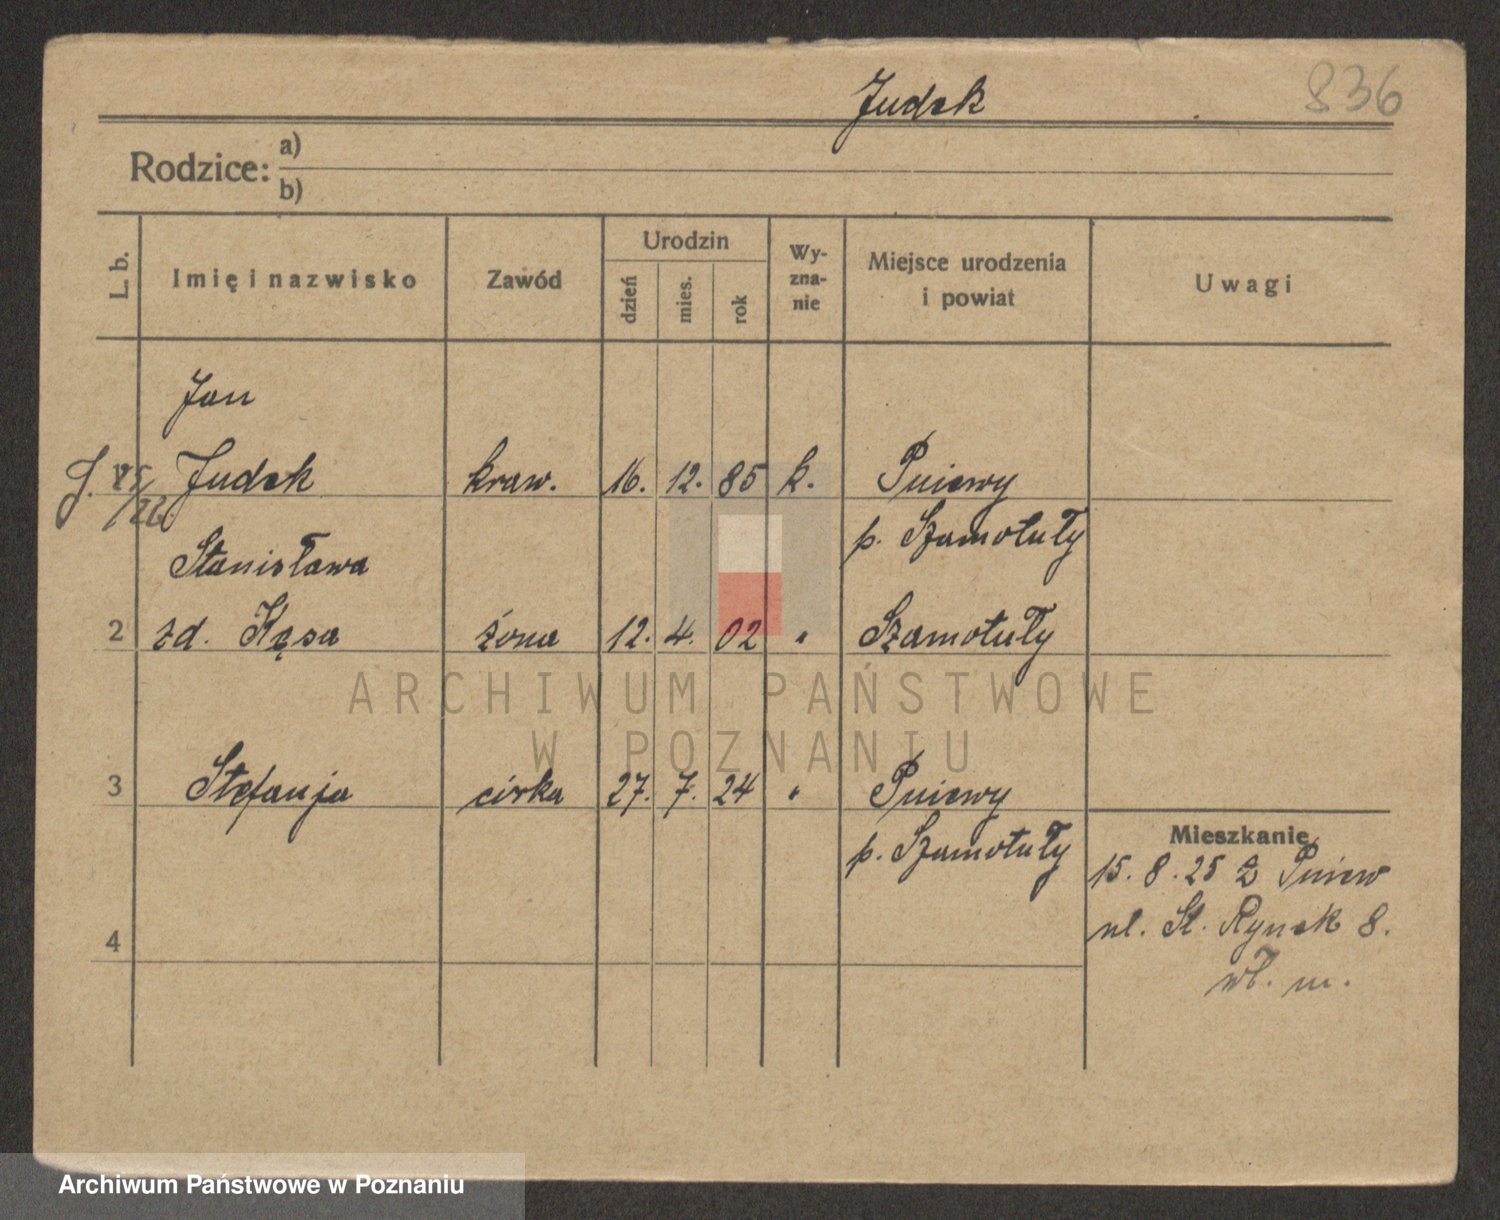 Judek
836
Rodzice: a)
b)
L. b.
Imię i nazwisko
Zawód
Urodzin
dzień
mies.
rok
Wy-
zna-
nie
Miejsce urodzenia
i powiat
Uwagi
Jan
J. 85/26 Judek kraw. 16. 12. 85 k. Pniewy
p. Szamotuły
Stanisława
2 zd. Kęsa żona 12. 4. 02 " Szamotuły
ARCHIWUM PAŃSTWOWE
W POZNANIU
3 Stefanja córka 27. 7. 24 " Pniewy
p. Szamotuły
Mieszkanie
15. 8. 25 z Pniew
ul. St. Rynek 8.
wł. m.
4
Archiwum Państwowe w Poznaniu